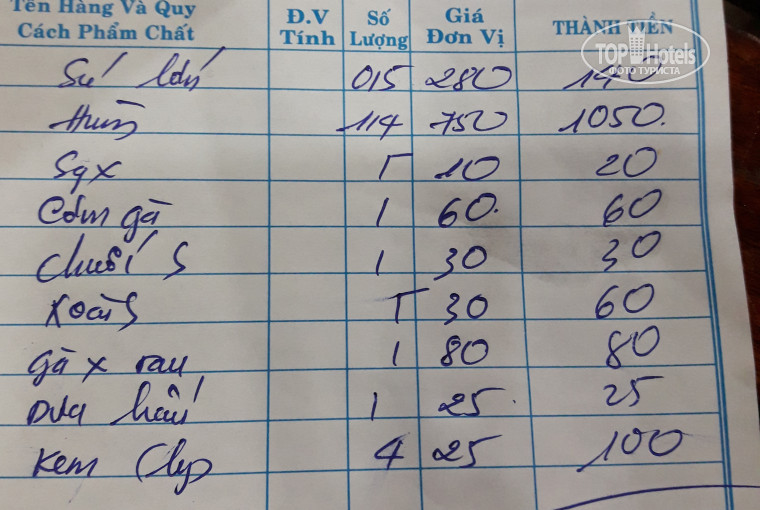 Tên Hàng Và Quy Cách Phẩm Chất Đ.V Tính Số Lượng Giá Đơn Vị THÀNH TIỀN
TOP Hotels
ФОТО ТУРИСТА
015 280 140
114 750 1050.
Sqx T 10 20
Cơm gà 1 60. 60
chuối S 1 30 30
xoài S T 30 60
gà x rau 1 80 80
Dưa hấu 1 25. 25
Kem 4 25 100